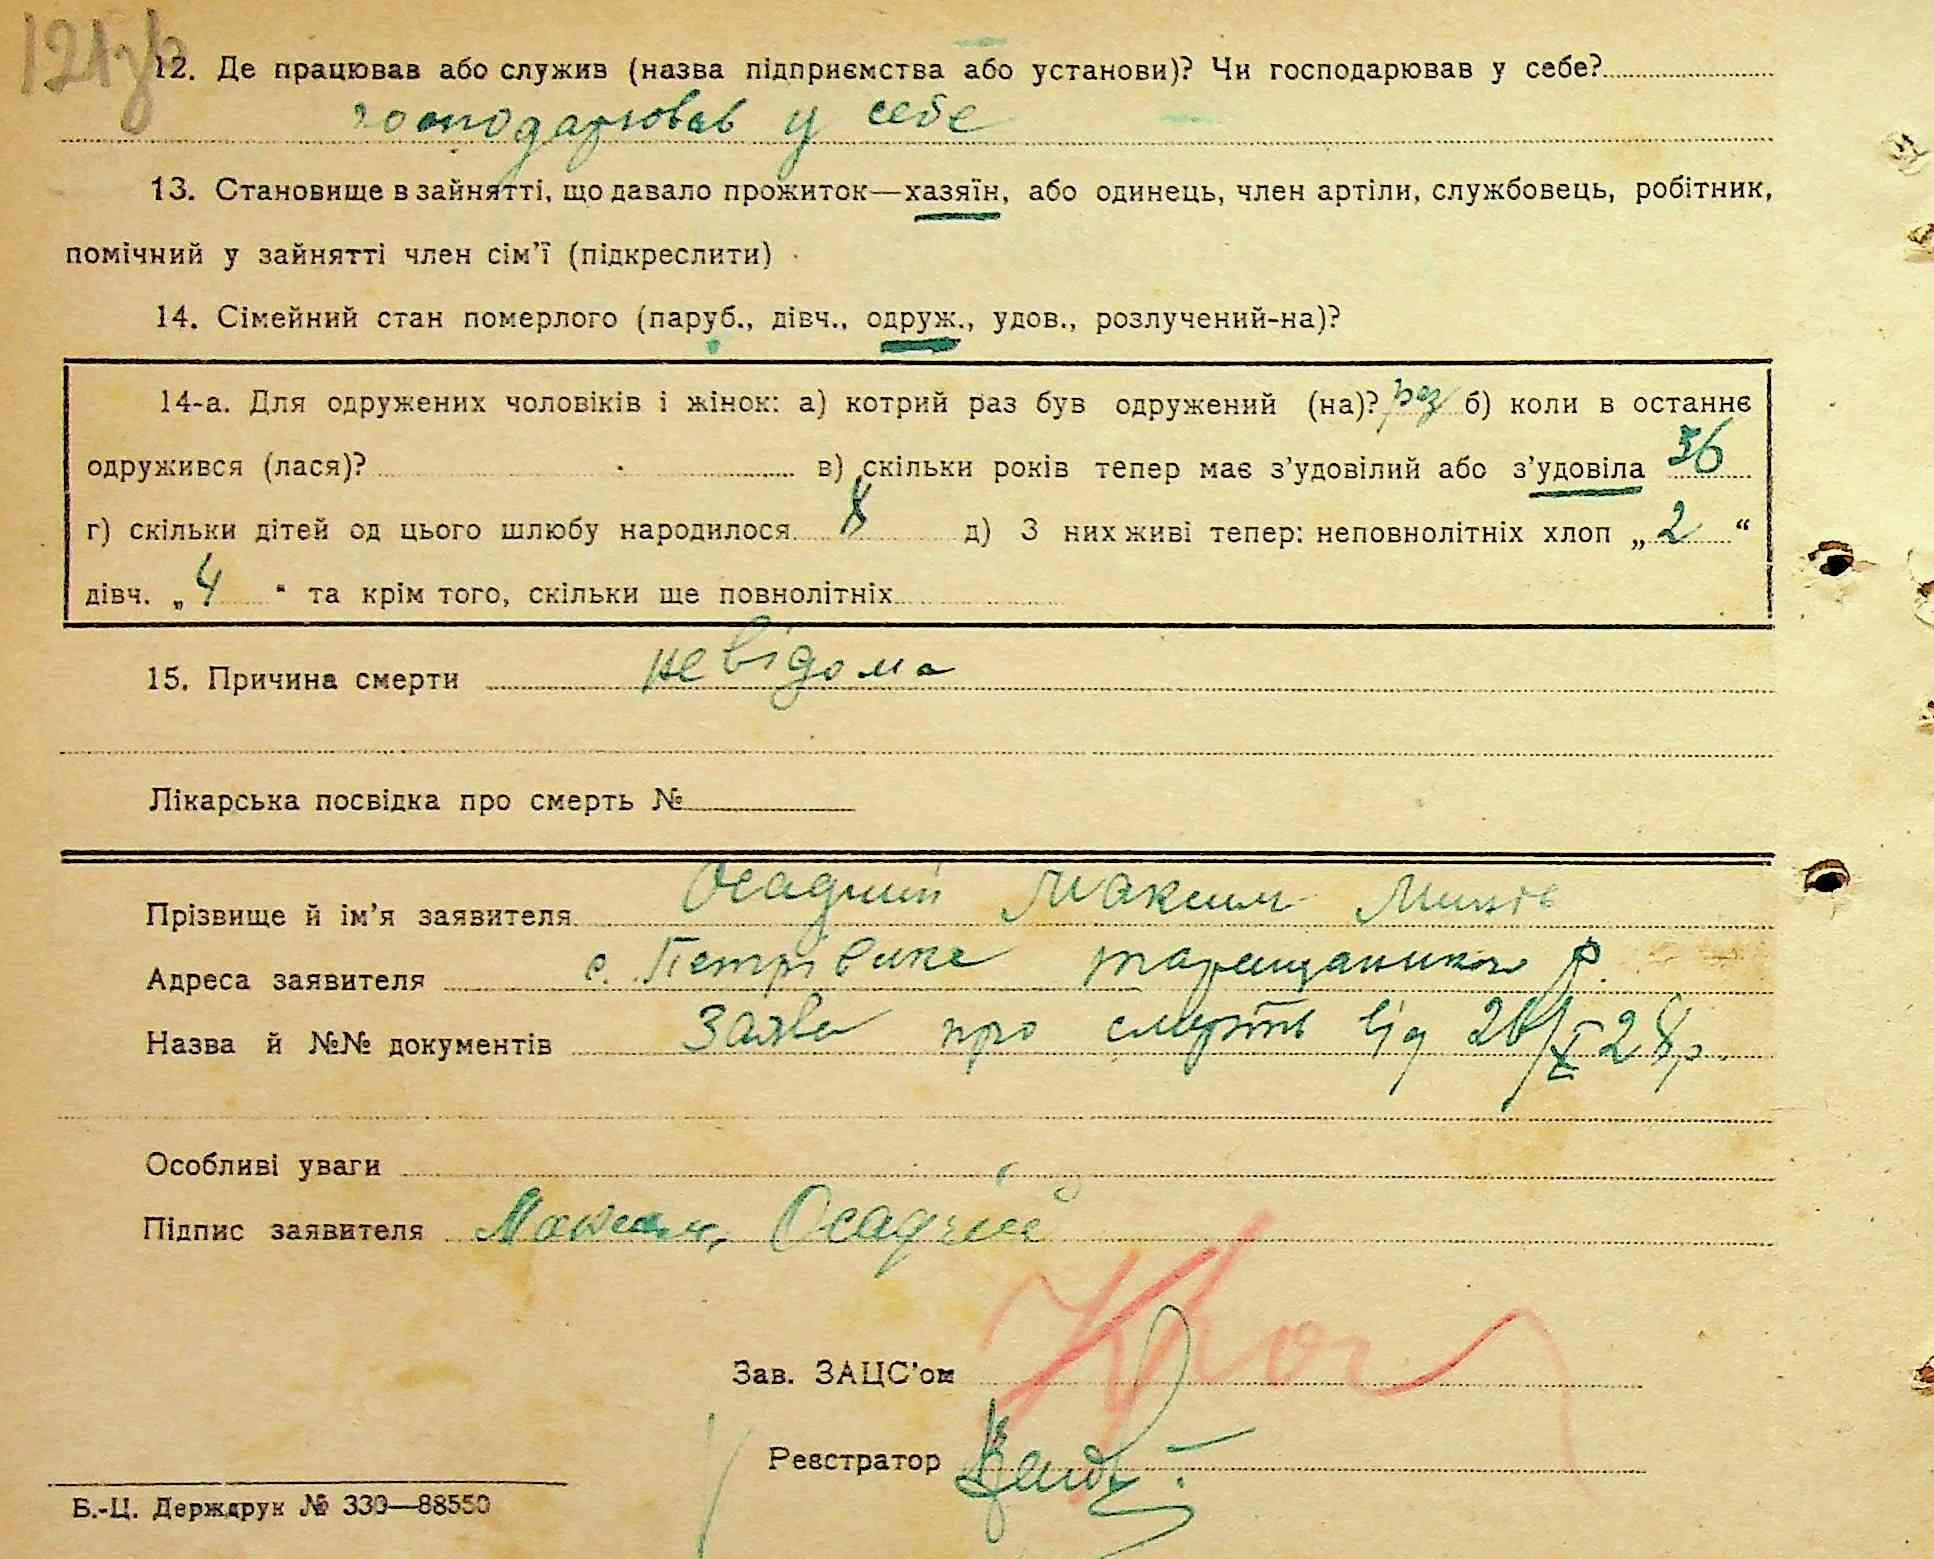 121зв
12. Де працював або служив (назва підприємства або установи)? Чи господарював у себе?
господарював у себе
13. Становище в зайнятті, що давало прожиток—хазяїн, або одинець, член артіли, службовець, робітник,
помічний у зайнятті член сім'ї (підкреслити)
14. Сімейний стан померлого (паруб., дівч., одруж., удов., розлучений-на)?
14-а. Для одружених чоловіків і жінок: а) котрий раз був одружений (на)? раз б) коли в останнє
одружився (лася)? в) скільки років тепер має з'удовілий або з'удовіла 36
г) скільки дітей од цього шлюбу народилося 8 д) З них живі тепер: неповнолітніх хлоп „2“
дівч. „4“ та крім того, скільки ще повнолітніх
15. Причина смерти невідома
Лікарська посвідка про смерть №
Прізвище й ім'я заявителя Осадчий Максим
Адреса заявителя с. Петрівка Таращанського р.
Назва й №№ документів Заява про смерть від 28р.
Особливі уваги
Підпис заявителя Максим Осадчий
Зав. ЗАЦС'ом
Реєстратор
Б.-Ц. Держдрук № 330—88550